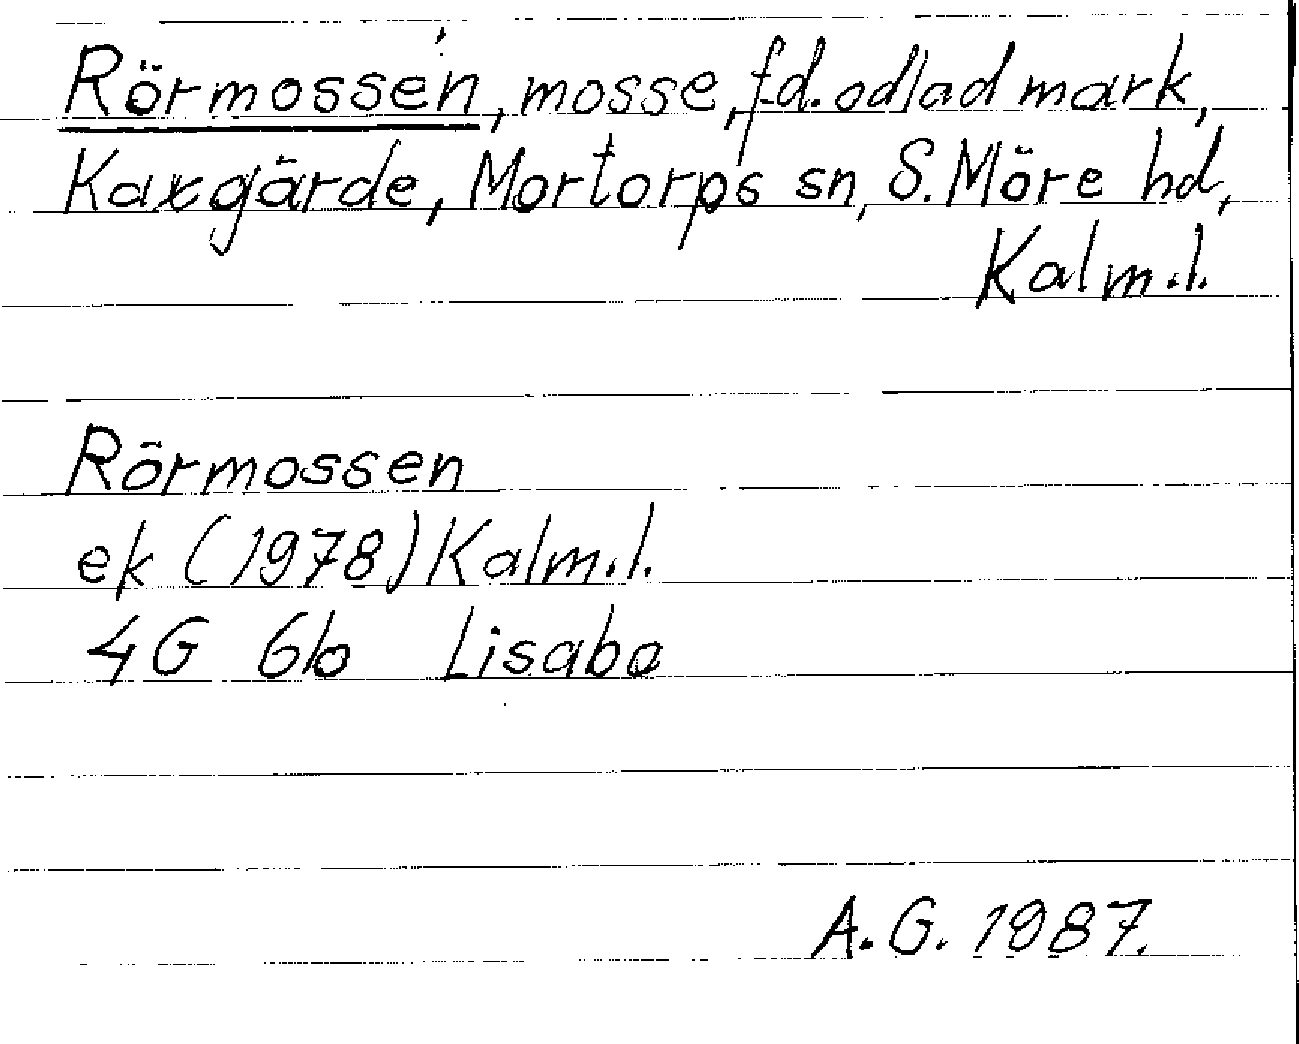 Rörmossen, mosse, f.d. odlad mark,
Kaxgärde, Mortorps sn, S. Möre hd,
Kalm.l.
Rörmossen
ek (1978) Kalm.l.
4G 6b Lisabo
A.G. 1987.